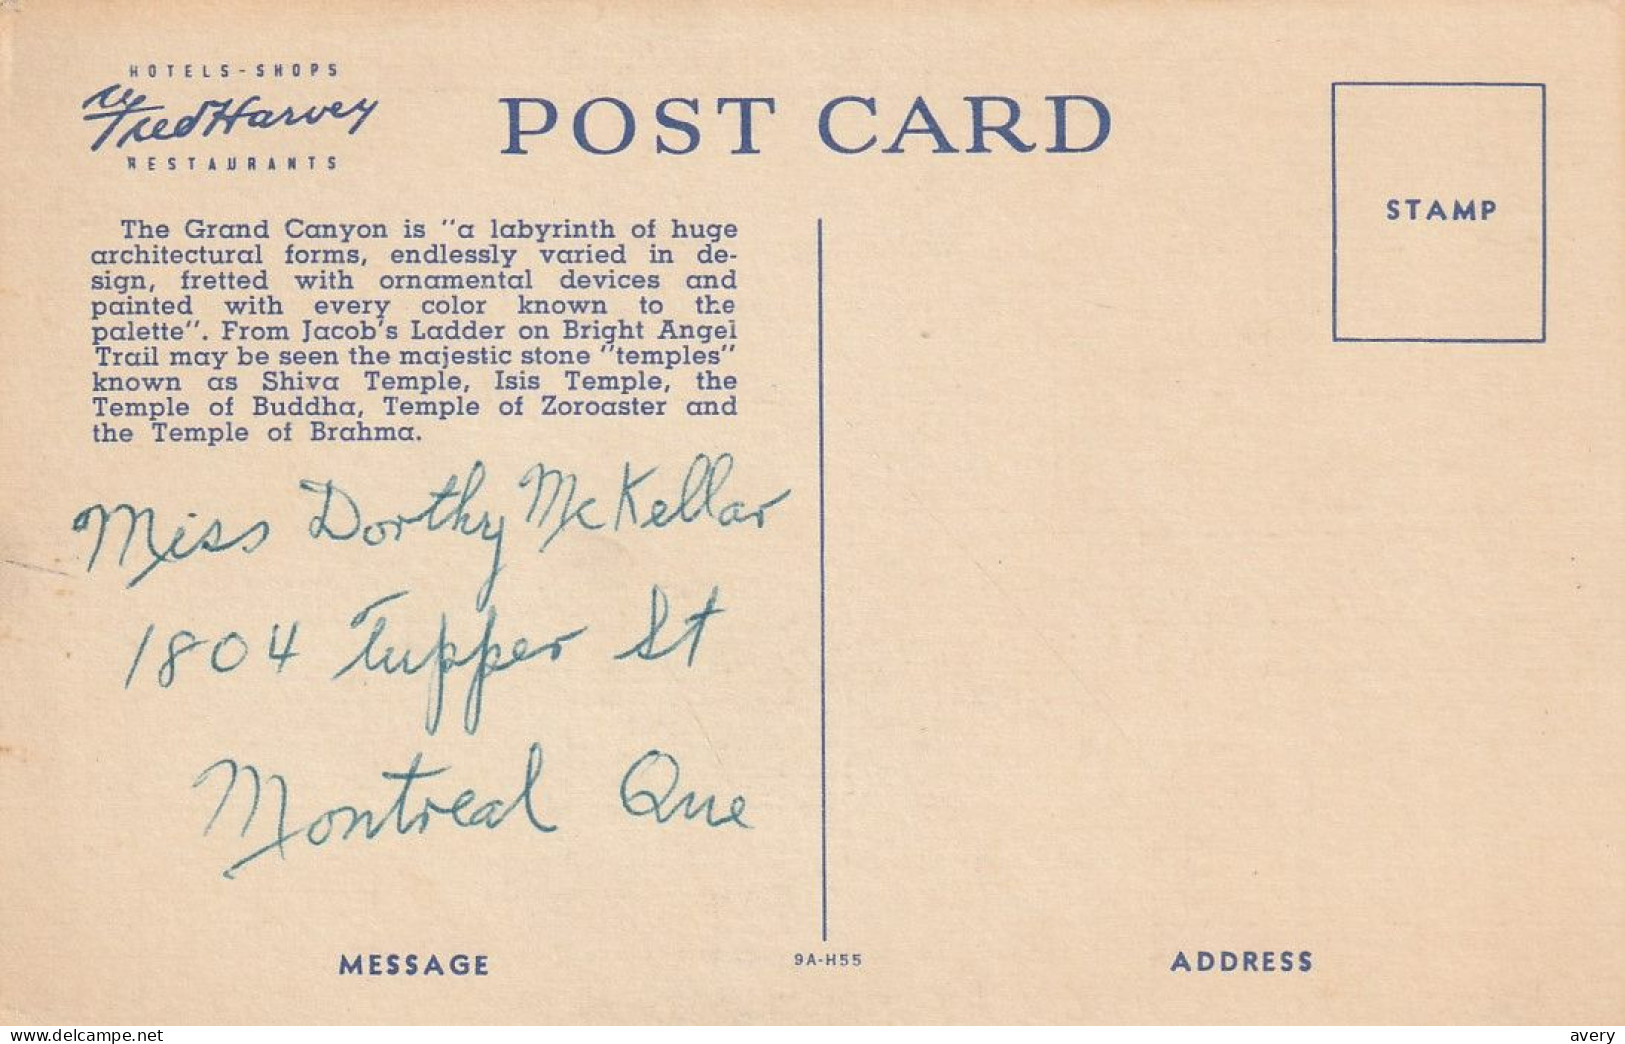 HOTELS-SHOPS
Fred Harvey
RESTAURANTS
POST CARD
STAMP
The Grand Canyon is "a labyrinth of huge
architectural forms, endlessly varied in de-
sign, fretted with ornamental devices and
painted with every color known to the
palette". From Jacob's Ladder on Bright Angel
Trail may be seen the majestic stone "temples"
known as Shiva Temple, Isis Temple, the
Temple of Buddha, Temple of Zoroaster and
the Temple of Brahma.
Miss Dorthy McKellar
1804 Tupper St
Montreal Que
MESSAGE
9A-H55
ADDRESS
www.delcampe.net
avery